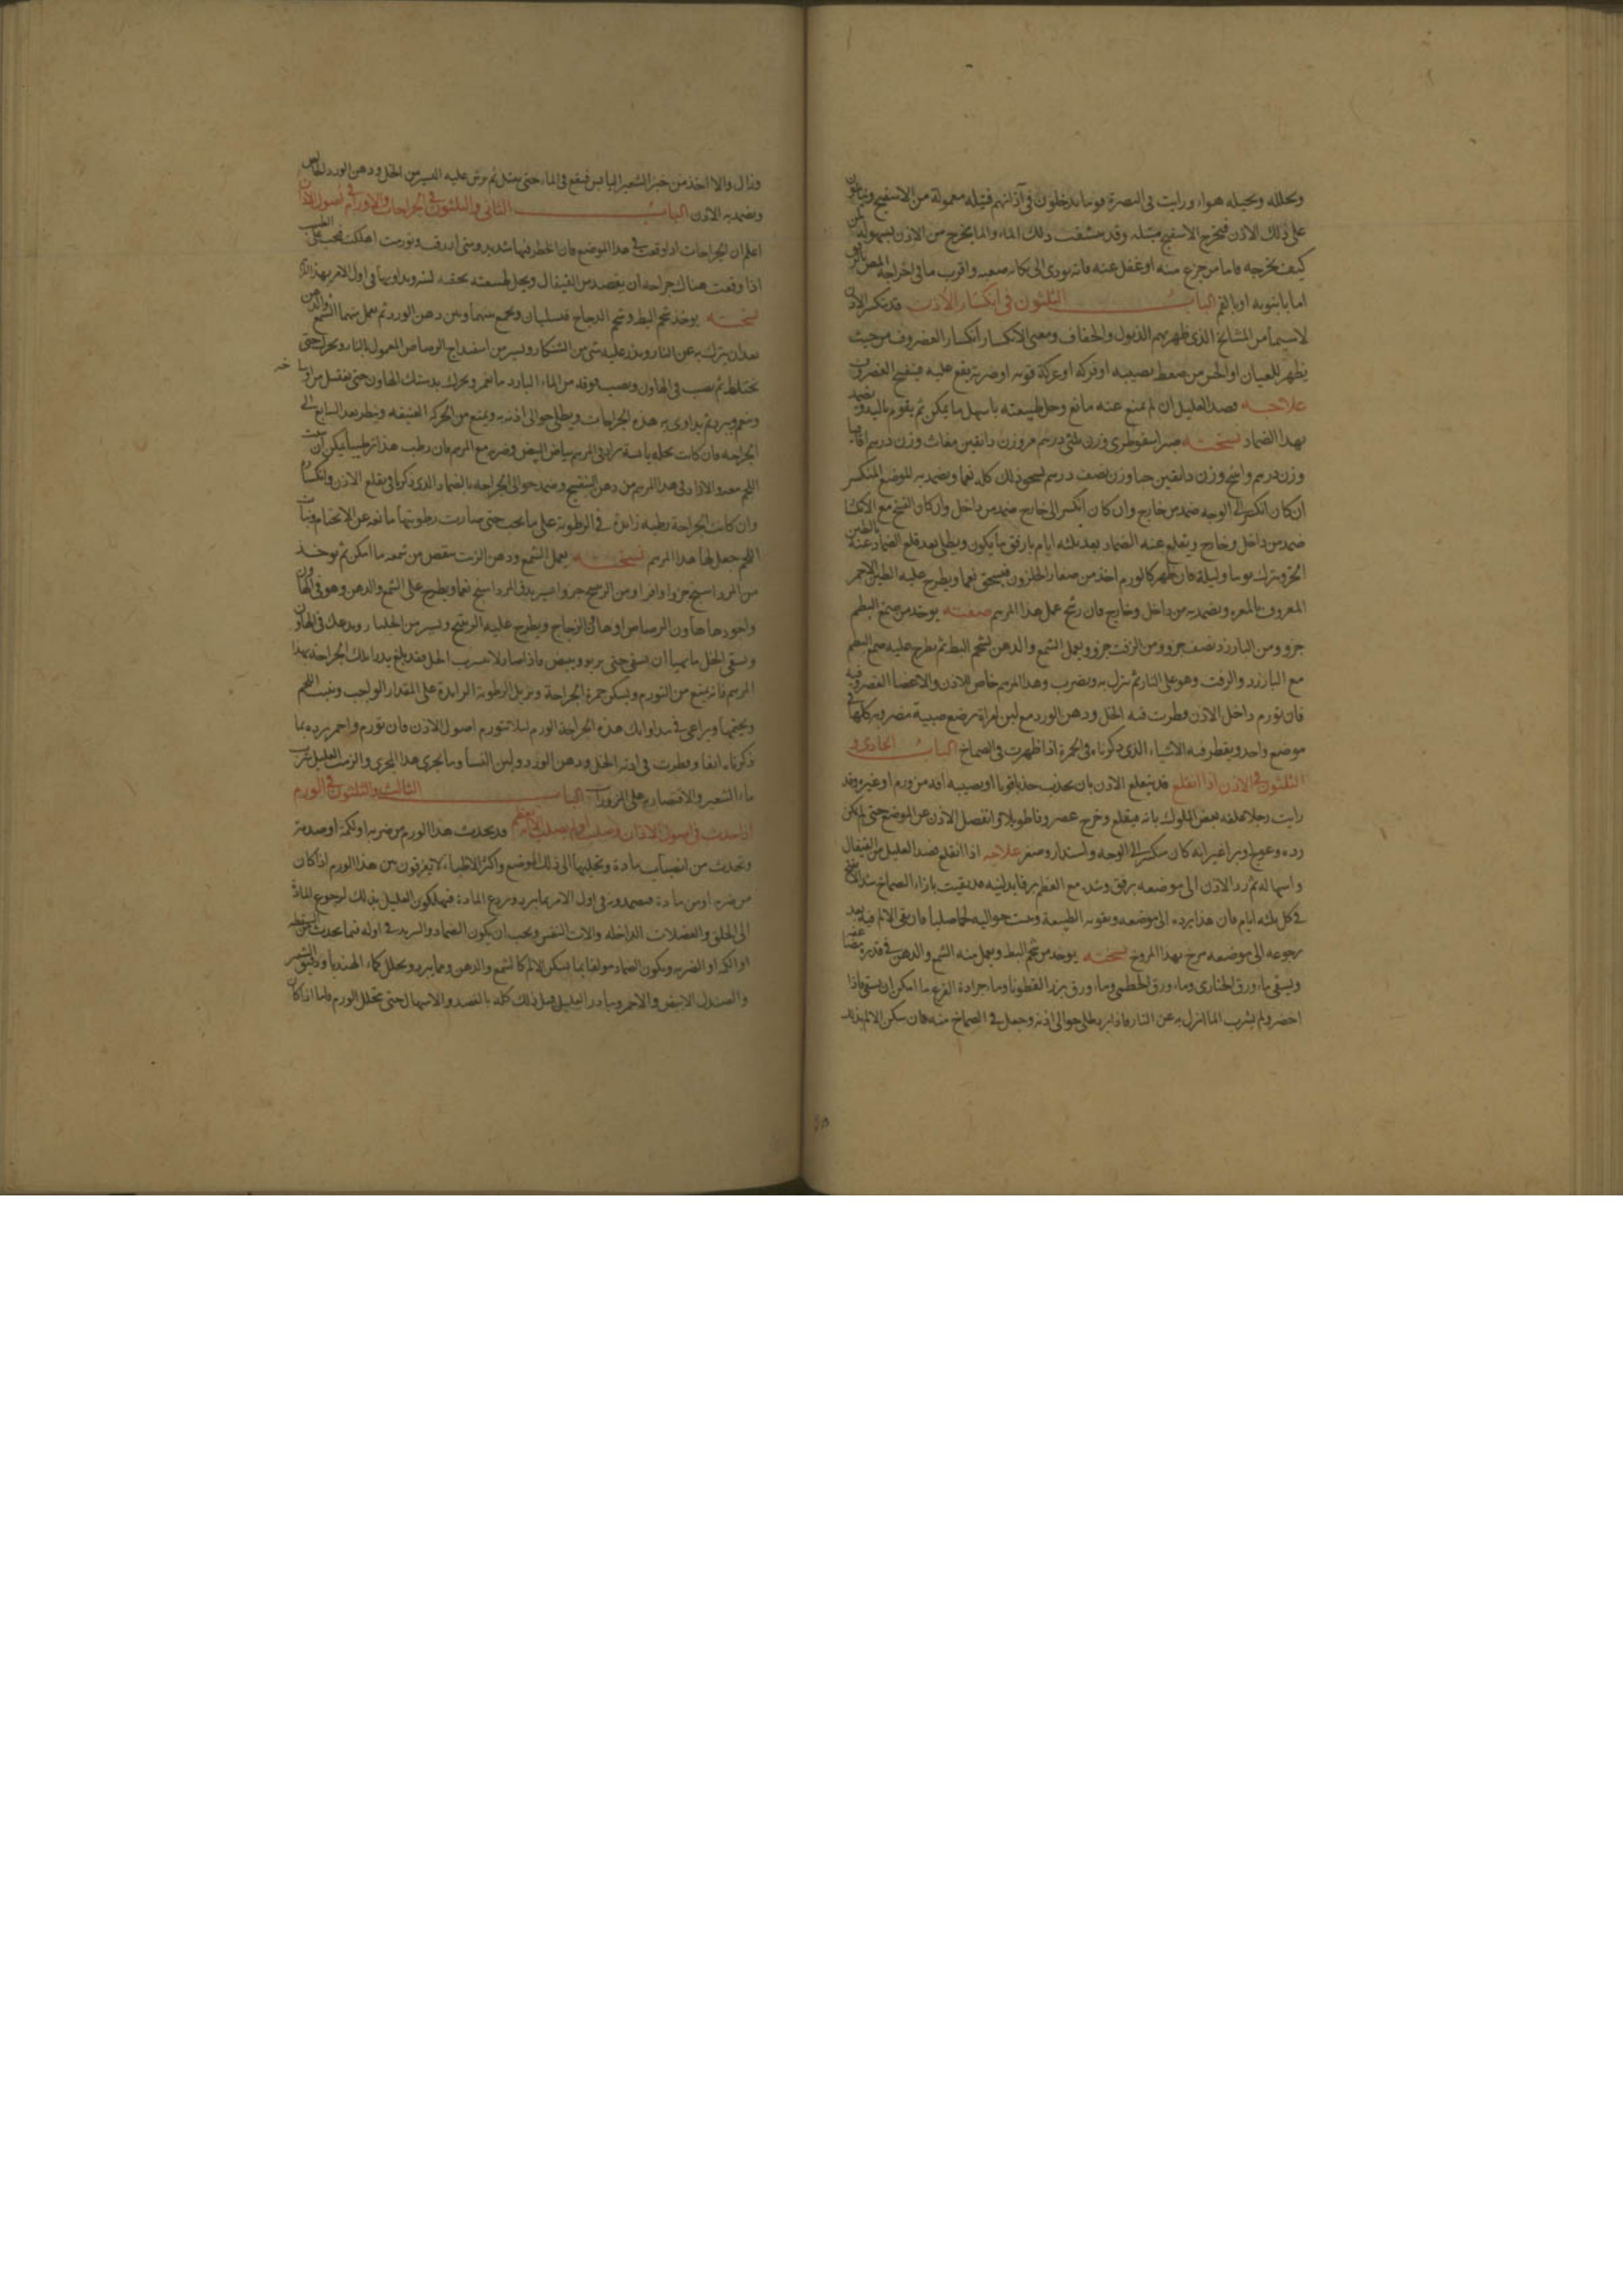 ويحلله ويحيله هواء ورايت في البصرة قوما يدخلون في آذانهم فتيلة معمولة من الاسفنج وينامون
على ذلك الاذن فيخرج الاسفنج مبتله وقد نشفت ذلك الماء والما يخرج من الاذن بسهولة
كيف يخرجه فاما من جزع منه او غفل عنه فانه يودي الى مكاره صعبه واقرب ما في اخراجه المص
اما بانبوبه او بالفم الباب الثلثون في انكسار الاذن قد تنكسر الاذن
لاسيما من المشايخ الذي ظهر بهم الذبول والجفاف ومعنى الانكسار انكسار الغضروف من حيث
يظهر للعيان او الحس من ضغط يصيبه او فركه او عركة قويه او ضربة يقع عليه فينفسخ الغضروف
علاجه فصد العليل ان لم يمنع عنه مانع وحل طبيعته باسهل ما يمكن ثم يقوم باليد ويضمد
بهذا الضماد نسخته صبر اسقوطري وزن ثلثي درهم مر وزن دانقين مغاث وزن درهم اقاقيا
وزن درهم واشج وزن دانقين حبا وزن نصف درهم يسحق ذلك كله نعما ويضمد به الموضع المنكسر
ان كان انكسر الى الوجه ضمد من خارج وان كان انكسر الى خارج ضمد من داخل وان كان الفسخ مع الانكسار
ضمد من داخل وخارج ويقلع عنه الضماد بعد ثلثه ايام بارفق ما يكون ويطلى بعد قلع الضماد عنه بالطين
الحر ويترك يوما وليلة فان ظهر كالورم اخذ من صغار الحلزون فيسحق نعما ويطرح عليه الطين الاحمر
المعروف بالمغره ويضمد به من داخل وخارج فان رشح عمل هذا المرهم صفته يوخذ من صمغ البطم
جزو ومن البارزد نصف جزو ومن الزفت جزو ويعمل الشمع والدهن بشحم البط ثم يطرح عليه صمغ البطم
مع البارزد والزفت وهو على النار ثم ينزل به ويضرب وهذا المرهم خاص للاذن والاعضا الغضروفية
فان تورم داخل الاذن قطرت فيه الخل ودهن الورد مع لبن امراة ترضع صبية مضروبه كلها في
موضع واحد ويقطر فيه الاشياء الذي ذكرناه في الحمرة اذا ظهرت في الصماخ الباب الحادي و
الثلثون في الاذن اذا انقلع قد ينقلع الاذن بان يجذب جذبا قويا او يصيبه افه من ورم او غيره وقد
رايت رجلا عاقبه بعض الملوك بانه فيقلع وخرج عصروفا طويلا وانفصل الاذن عن الموضع حتى لم يكن
رده وعولج وبرا غير انه كان منكسر الى الوجه واستدار وصغر علاجه اذا انقلع فصد العليل من القيفال
واسهاله ثم رد الاذن الى موضعه برفق وشد مع العظم برفايد لينه قد بقيت بازاء الصماخ
في كل ثلثه ايام فان هذا يرده الى موضعه وبقوته الطبيعة حواليه لحما صلبا فان بقي الالم فيه بعد
رجوعه الى موضعه مرخ بهذا المروخ نسخته يوخذ من شحم البط ويعمل منه الشمع والدهن في قدر
ويسقى ماء ورق الخبازى وماء ورق الخطمي وماء ورق بزر القطونا وماء جرادة القرع ما امكن ان يسقى فاذا
احضر ولم يشرب الما انزل به عن النار فاذا برد طلي حوالي اذنه وجعل في الصماخ منه فان سكن الالم بذلك
وزال والا اخذ من خبز الشعير اليابس فينقع في الماء حتى يبتل ثم يرش عليه اليسير من الخل ودهن الورد الخالص
ويضمد به الاذن الباب الثاني والثلثون في الجراحات والاورام في اصول الاذان
اعلم ان الجراحات اذا وقعت في هذا الموضع فان الخطر فيها شديد ومتى اردف وتورمت اهلكت فيجب على الطبيب
اذا وقعت هناك جراحه ان يفصد من القيفال ويحل طبيعته بحقنه لينه ويداويها في اول الامر بهذا الدواء
نسخته يوخذ شحم البط وشحم الدجاج فيسليان ويجمع بينهما وبين دهن الورد ثم يعمل منهما الشمع والدهن
بعد ان ينزل به عن النار ويذر عليه شي من الشنكار ويسير من اسفيداج الرصاص المعمول بالنار ويحرك حتى
يختلط ثم يصب في الهاون ويصب فوقه من الماء البارد ما غمر ويحرك بدستك الهاون حتى يغتسل مرارا
وينعم ويبرد ثم يداوى به هذه الجراحات ويطلى حوالي اذنه به ويمنع من الحركه العنيفه وينظر بعد السابع الى
الجراحه فان كانت نحله يابسة زاد في المرهم بياض البيض وضربه مع المرهم فان رطب هذا ترطيبا يمكن ان ينبت
اللحم معه والا زاد في هذا المرهم من دهن البنفسج وضمد حوالي الجراحه بالضماد الذي ذكرنا في قلع الاذن وانكسارها
وان كانت الجراحة رطبه زايدة في الرطوبة على ما يجب حتى صارت رطوبتها مانعه عن الالتحام ونبات
اللحم جعل لها هذا المرهم نسخته يعمل الشمع ودهن الزيت ينقص من شمعه ما امكن ثم يوخذ
من المرداسنج جزوا وافرا ومن الروسختج جزوا المرداسنج نعما ويطرح على الشمع والدهن وهو في الهاون
واجودها هاون الرصاص او هاون الزجاج ويطرح عليه الروسختج ويسير من الجلنار ويدعك في الهاون
ويسقى الخل ما تهيا ان يسقى حتى يربو ويبيض فاذا صار لا يشرب الخل فقد بلغ يدر تلك الجراحه بهذا
المرهم فانه يمنع من التورم ويسكن حمرة الجراحة ويزيل الرطوبة الزايدة على المقدار الواجب وينبت اللحم
ويختمها ويراعى في مداواتك هذه الجراحة الورم ليلا تتورم اصول الاذن فان تورم واحمر برده بما
ذكرناه انفا وقطرت في اذنه الخل ودهن الورد ولبن النسا وما يجري هذا المجرى والزمت العليل شرب
ماء الشعير والاقتصار به على المزورات الباب الثالث والثلثون في الورم
اذا حدث في اصول الاذان قد يحدث هذا الورم من ضربه او لكمة او صدمة
ويحدث من انصباب مادة وتحلبها الى ذلك الموضع واكثر الاطباء لا يفرقون بين هذا الورم اذا كان
من ضربه او من مادة فيضمدونه في اول الامر بما يبرد ويردع المادة فيهلكون العليل بذلك لرجوع المادة
الى الحلق والعضلات الداخله والات النفس ويجب ان يكون الضماد والتبريد في اوله فيما يحدث من السقطه
او اللكمه او الضربه ويكون الضماد مولفا بما يسكن الالم كالشمع والدهن ومما يبرد ويحلل كماء الهندبا ودقيق الشعير
والصندل الابيض والاحمر ويبادر العليل قبل ذلك كله بالفصد والاسهال حتى يتحلل الورم فاما اذا كان